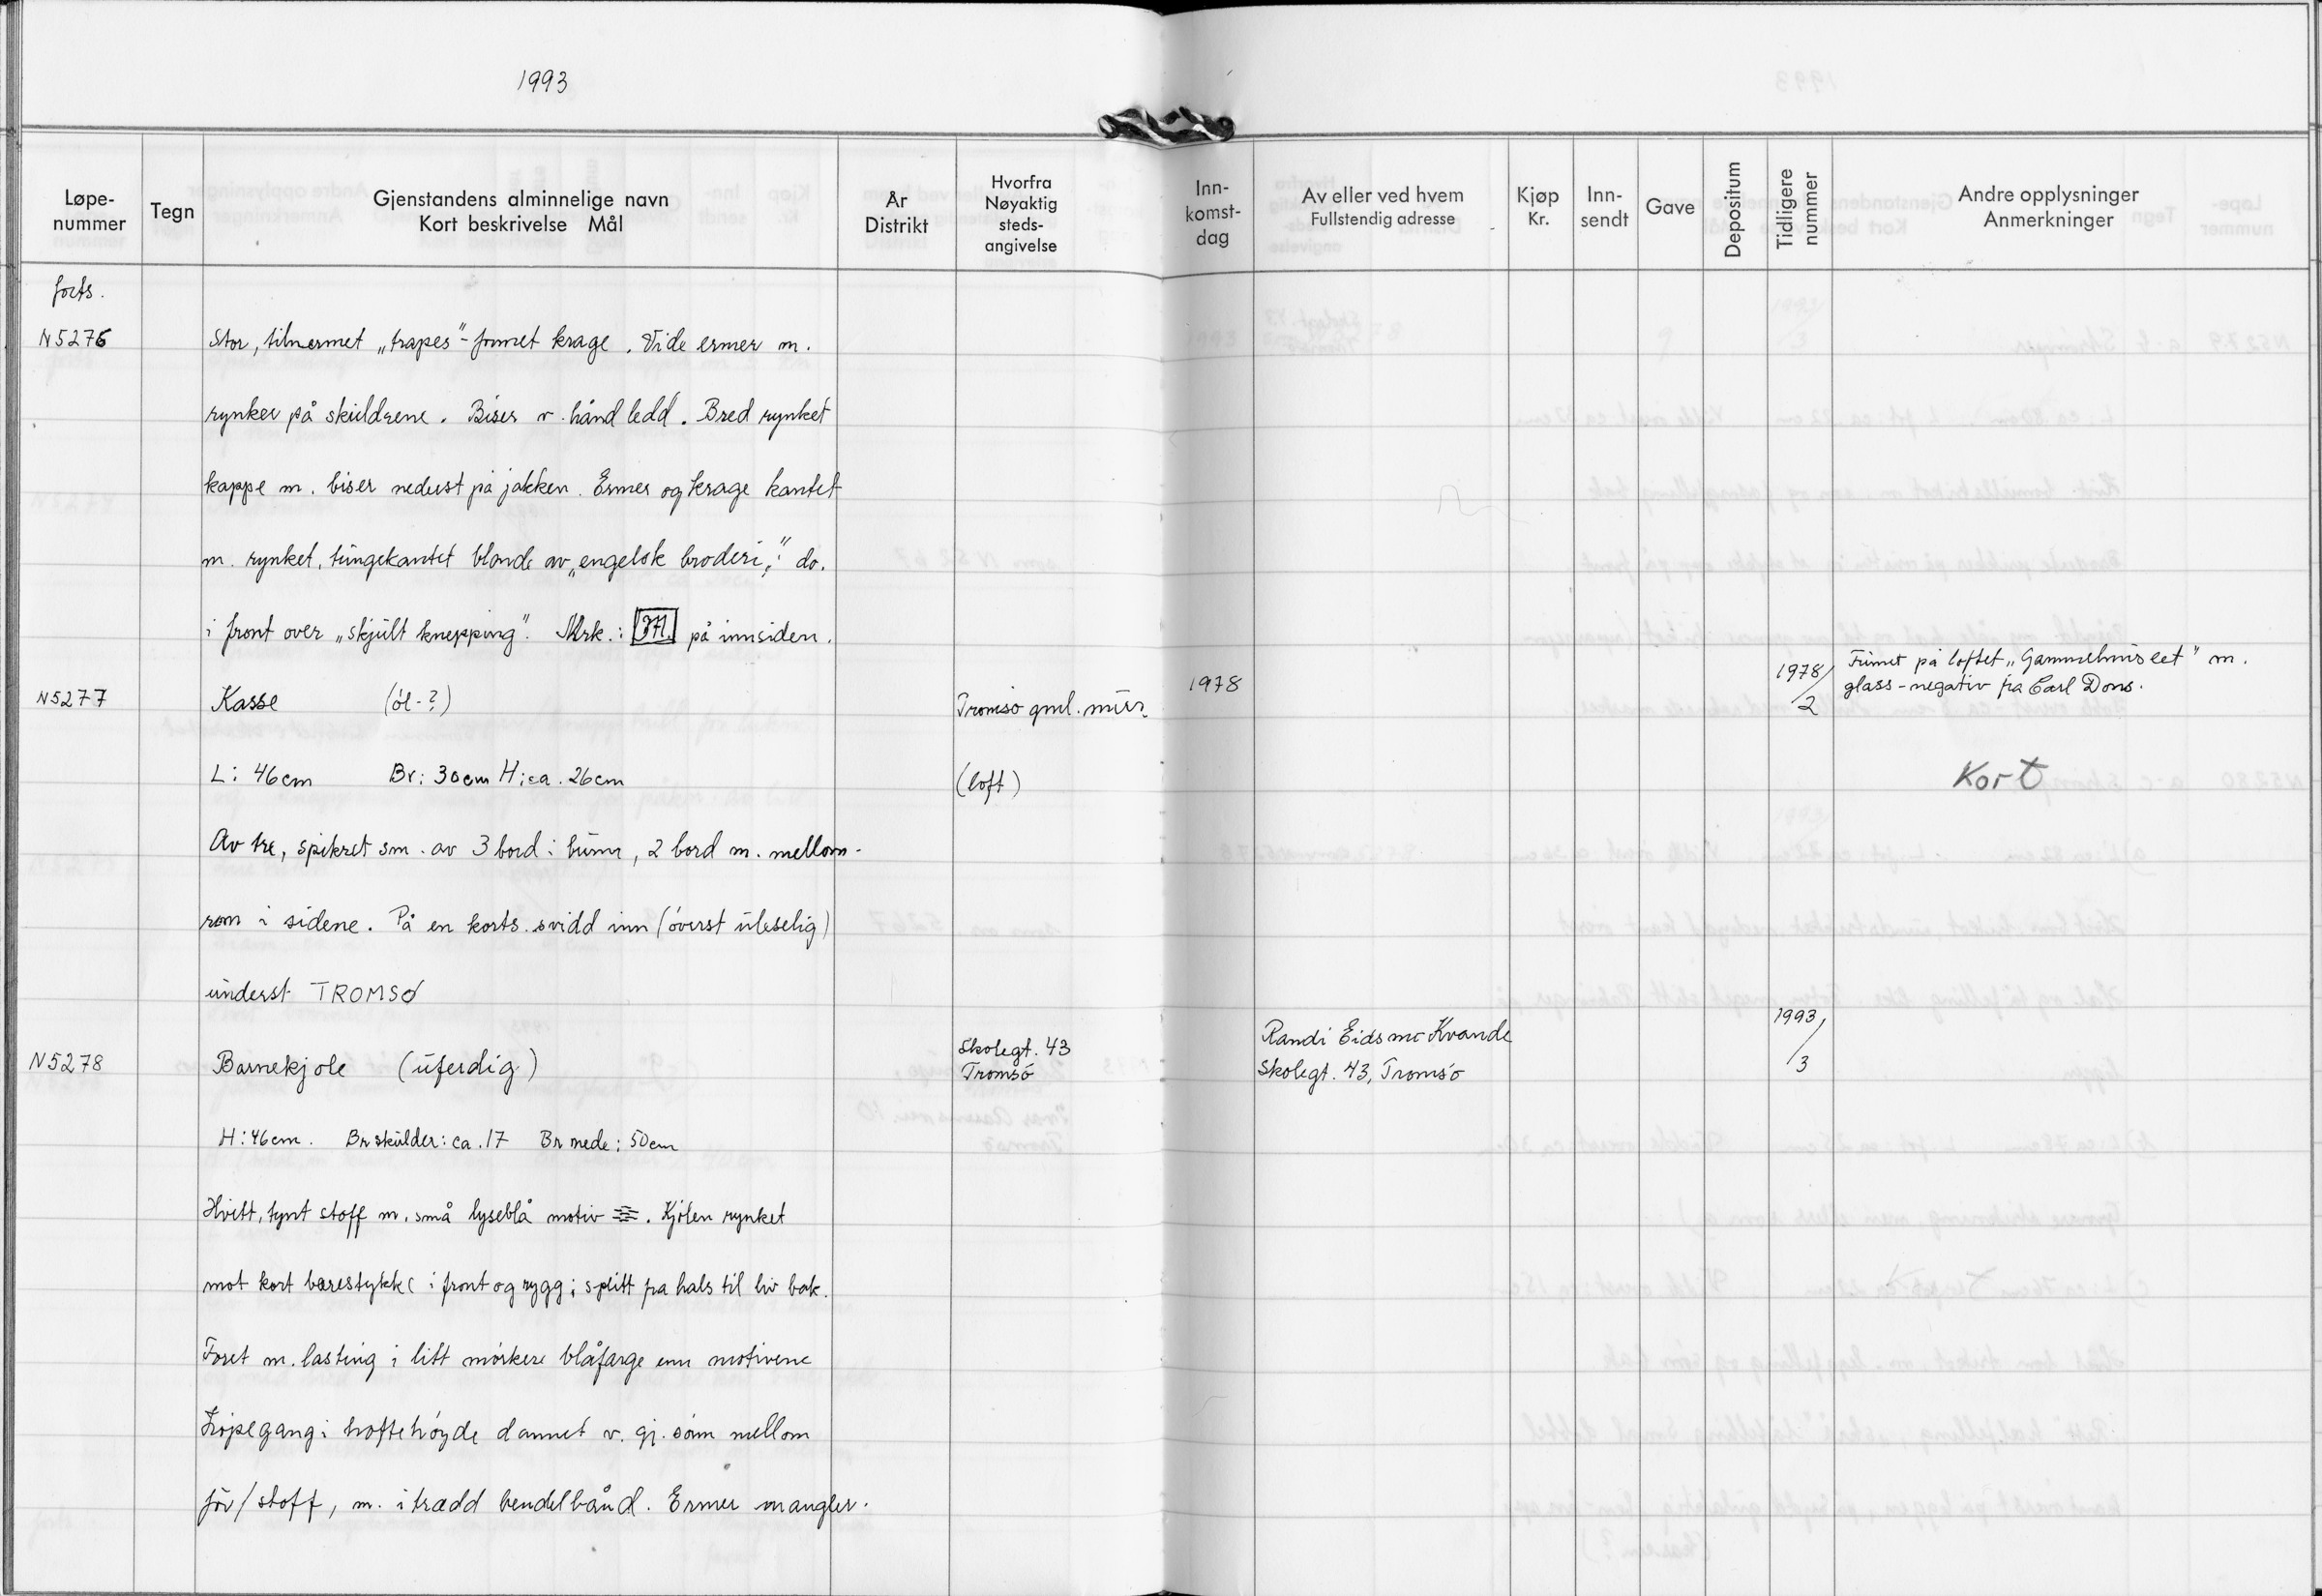 1993
Løpe-
nummer
Tegn
Gjenstandens alminnelige navn
Kort beskrivelse Mål
År
Distrikt
Hvorfra
Nøyaktig
steds-
angivelse
Inn-
komst-
dag
Av eller ved hvem
Fullstendig adresse
Kjøp
Kr.
Inn-
sendt
Gave
Depositum
Tidligere
nummer
Andre opplysninger
Anmerkninger
forts.
N5276
Stor, tilnermet „trapes"-formet krage. Vide ermer m.
rynker på skuldrene. Biser v. hånd ledd. Bred rynket
kappe m. biser nederst på jakken. Ermer og krage kantet
m. rynket, tungekantet blonde av „engelsk broderi", do.
i front over „skjult knepping". Mrk.: på innsiden.
N5277
Kasse (øl-?)
Tromsø gml. mus.
1978
1978/2
Funnet på loftet „Gammelmuseet" m.
glass-negativ fra Carl Dons.
L: 46cm Br: 30cm H: ca. 26cm
(loft)
Kort
Av tre, spikret sm. av 3 bord i bunn, 2 bord m. mellom-
rom i sidene. På en korts. svidd inn (øverst uleselig)
underst TROMSØ
N5278
Barnekjole (uferdig)
Skolegt. 43
Tromsø
Randi Eidsmo Kvande
Skolegt. 43, Tromsø
1993/3
H: 46cm. Br skulder: ca. 17 Br nede: 50cm
Hvitt, tynt stoff m. små lyseblå motiv . Kjølen rynket
mot kort bærestykke i front og rygg; splitt fra hals til liv bak.
Foret m. lasting i litt mørkere blåfarge enn motivene
Løpegang i hoftehøyde dannet v. gj. søm mellom
fôr/stoff, m. itrædd bendelbånd. Ermer mangler.